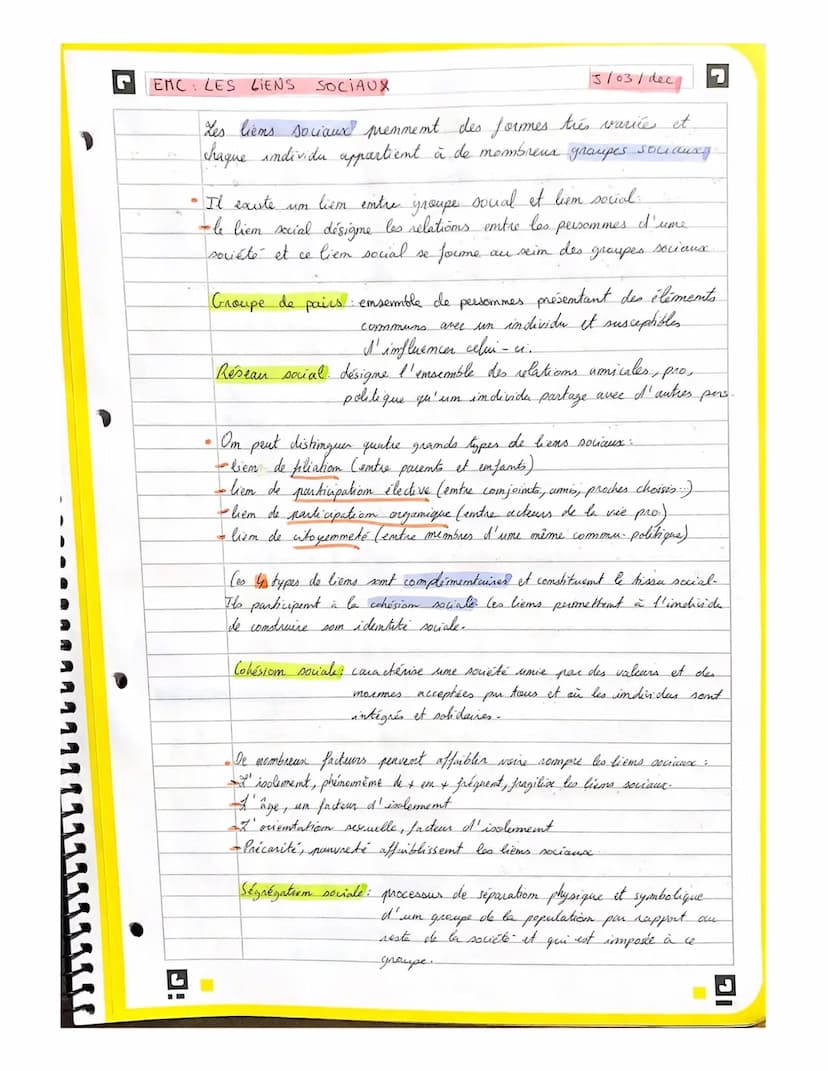 EMC : LES LIENS SOCIAUX
5/03/dec
Les liens sociaux prennent des formes très variées et
chaque individu appartient à de nombreux groupes sociaux,
• Il existe un lien entre groupe social et lien social:
- le lien social désigne les relations entre les personnes d'une
société et ce lien social se forme au sein des groupes sociaux
Groupe de pairs : ensemble de personnes présentant des éléments
communs avec un individu et susceptibles
d'influencer celui-ci.
Réseau social: désigne l'ensemble des relations amicales, pro,
politique qu'un individu partage avec d'autres pers.
• On peut distinguer quatre grands types de liens sociaux :
- lien de filiation (entre parents et enfants)
- lien de participation élective (entre conjoints, amis, proches choisis...)
- lien de participation organique (entre acteurs de la vie pro)
- lien de citoyenneté (entre membres d'une même commu. politique)
Ces 4 types de liens sont complémentaires et constituent le tissu social.
Ils participent à la cohésion sociale Ces liens permettent à l'individu
de construire son identité sociale.
Cohésion sociale: caractérise une société unie par des valeurs et des
normes acceptées par tous et où les individus sont
intégrés et solidaires.
• De nombreux facteurs peuvent affaiblir voire rompre les liens sociaux :
- L'isolement, phénomème de + en + fréquent, fragilise les liens sociaux.
- L'âge, un facteur d'isolement
- L'orientation sexuelle, facteur d'isolement
- Précarité, pauvreté affaiblissent les liens sociaux
Ségrégation sociale : processus de séparation physique et symbolique
d'un groupe de la population par rapport au
reste de la société et qui est imposée à ce
groupe.